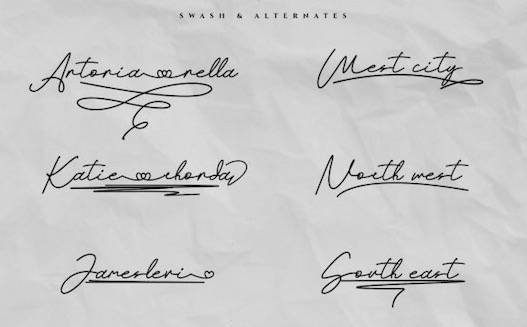 SWASH & ALTERNATES
Artoria rella
West city
Katie chorda
North west
Jamesleri
South east